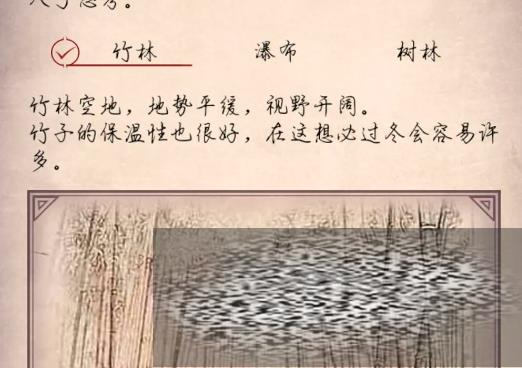 竹林 瀑布 树林
竹林空地，地势平缓，视野开阔。
竹子的保温性也很好，在这想必过冬会容易许
多。